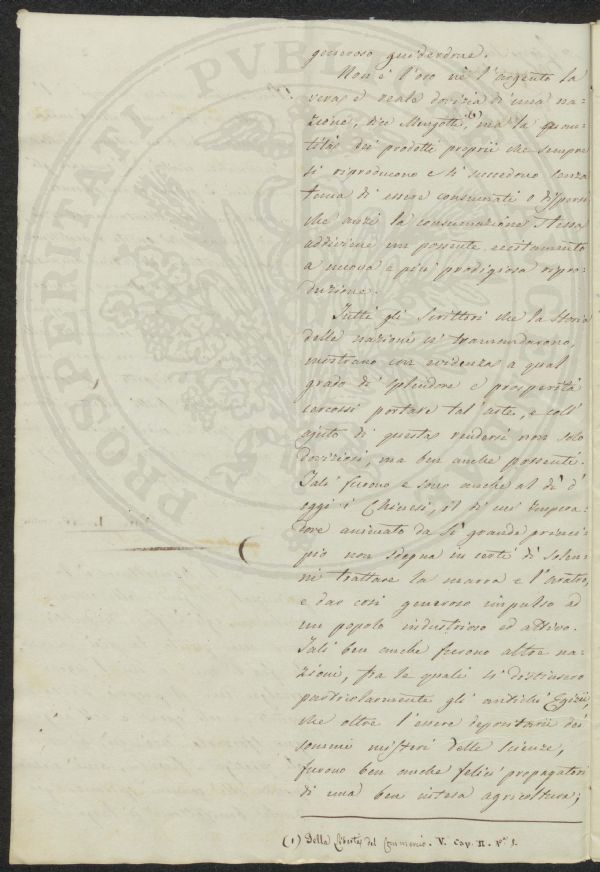 generoso guiderdone.
Non è l'oro nè l'argento la
vera e reale dovizia di una na=
zione, dice Mengotti (1), ma la quan=
tità dei prodotti proprii che sempre
si riproducono e si succedono senza
tema di essere consumati o dispersi
che anzi la consumazione stessa
addiviene un possente eccitamento
a nuova e più prodigiosa ripro=
duzione.
Tutti gli Scrittori che la Storia
delle nazioni ci tramandarono,
mostrano con evidenza a qual
grado di splendore e prosperità
cercossi portare tal'arte, e coll'
ajuto di questa rendersi non solo
doviziosi, ma ben anche possenti.
Tali furono e sono anche al dì d'
oggi i Chinesi, il di cui Impera=
tore animato da sì grande princi=
pio non sdegna in certi dì solen=
ni trattare la marra e l'aratro,
e dar così generoso impulso ad
un popolo industrioso ed attivo.
Tali ben anche furono altre na=
zioni, fra le quali si distinsero
particolarmente gli antichi Egizii,
che oltre l'essere depositarii dei
sommi misteri delle scienze,
furono ben anche felici propagatori
di una ben intesa agricoltura;
(1) Della Libertà del Commercio. V. Cap. II. Pa. 1.
PROSPERITATI PVBLIC